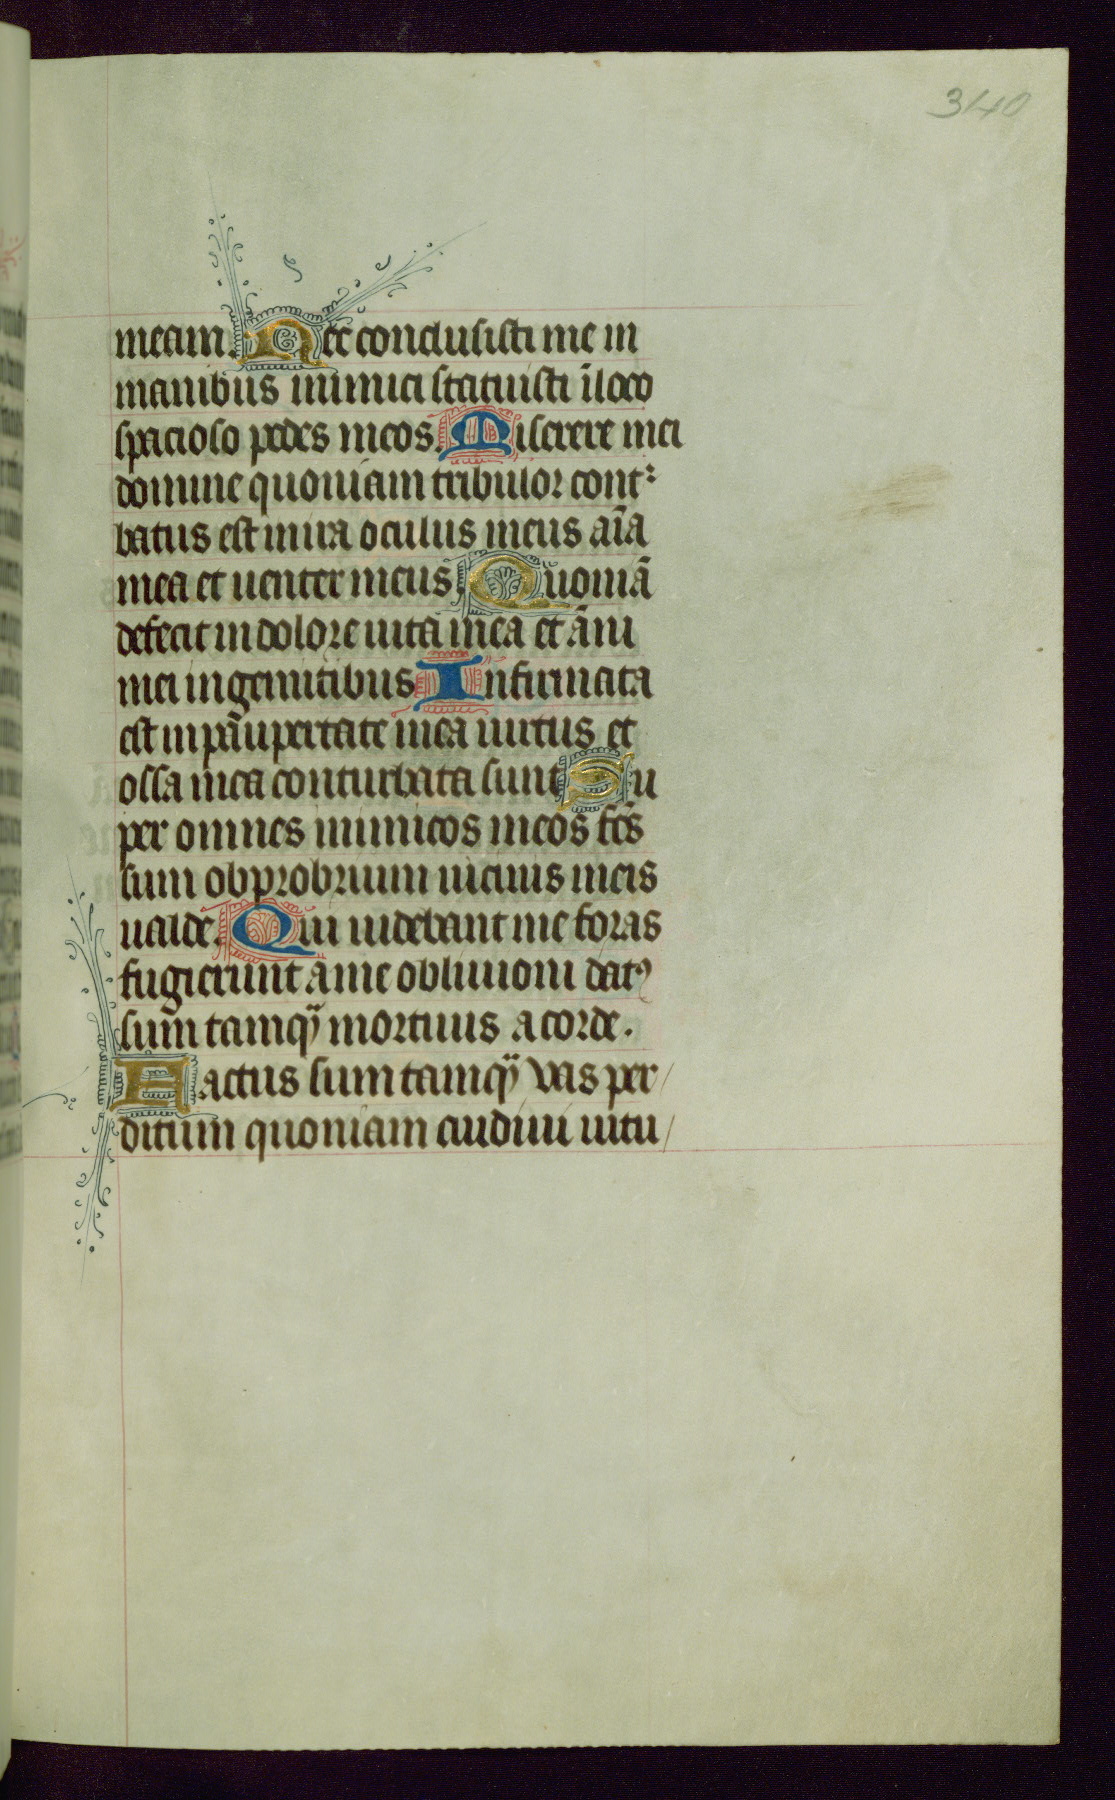 340
meam. Nec conclusisti me in
manibus inimici statuisti ī loco
spacioso pedes meos. Miserere mei
domine quoniam tribulor contꝛ
batus est in ira oculus meus aīa
mea et uenter meus. Quoniā
defecit in dolore uita mea et āni
mei in gemitibus. Infirmata
est in paupertate mea uirtus et
ossa mea conturbata sunt Su
per omnes inimicos meos fcs̄
sum obprobrium uicinis meis
ualde. Qui uidebant me foras
fugierunt a me obliuioni datꝰ
sum tamqͣ mortuus a corde.
Factus sum tamqͣ vas per/
ditum quoniam audiui uitu/